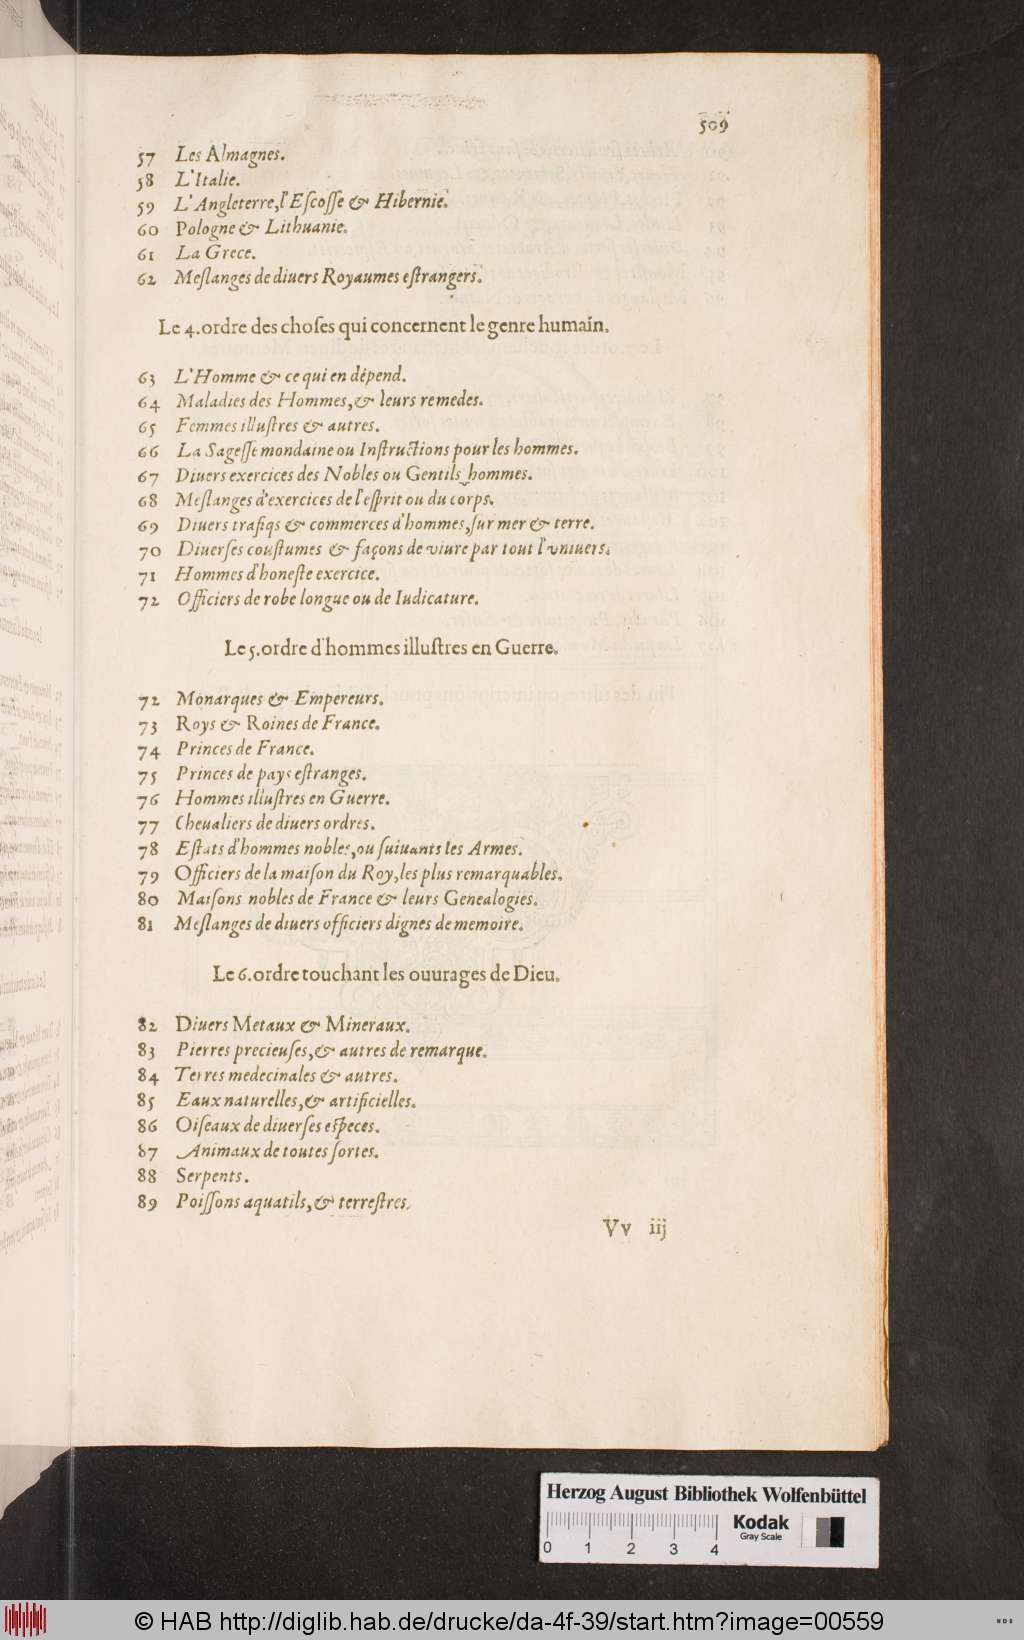 509
57 Les Almagnes.
58 L'Italie.
59 L'Angleterre, l'Escosse & Hibernie.
60 Pologne & Lithuanie.
61 La Grece.
62 Meslanges de diuers Royaumes estrangers.
Le 4. ordre des choses qui concernent le genre humain.
63 L'Homme & ce qui en dépend.
64 Maladies des Hommes, & leurs remedes.
65 Femmes illustres & autres.
66 La Sagesse mondaine ou Instructions pour les hommes.
67 Diuers exercices des Nobles ou Gentils hommes.
68 Meslanges d'exercices de l'esprit ou du corps.
69 Diuers trafiqs & commerces d'hommes, sur mer & terre.
70 Diuerses coustumes & façons de viure par tout l'vniuers.
71 Hommes d'honeste exercice.
72 Officiers de robe longue ou de Iudicature.
Le 5. ordre d'hommes illustres en Guerre.
72 Monarques & Empereurs.
73 Roys & Roines de France.
74 Princes de France.
75 Princes de pays estranges.
76 Hommes illustres en Guerre.
77 Cheualiers de diuers ordres.
78 Estats d'hommes nobles, ou suiuants les Armes.
79 Officiers de la maison du Roy, les plus remarquables.
80 Maisons nobles de France & leurs Genealogies.
81 Meslanges de diuers officiers dignes de memoire.
Le 6. ordre touchant les ouurages de Dieu.
82 Diuers Metaux & Mineraux.
83 Pierres precieuses, & autres de remarque.
84 Terres medecinales & autres.
85 Eaux naturelles, & artificielles.
86 Oiseaux de diuerses especes.
87 Animaux de toutes sortes.
88 Serpents.
89 Poissons aquatils, & terrestres.
Vv iij
Herzog August Bibliothek Wolfenbüttel
Kodak
Gray Scale
0 1 2 3 4
© HAB http://diglib.hab.de/drucke/da-4f-39/start.htm?image=00559